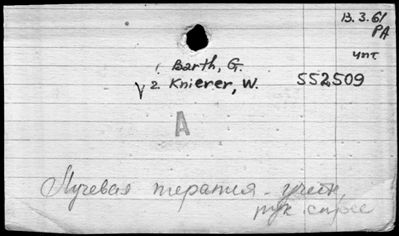 13.3.61
PA
чит
1. Barth, G.
√ 2. Knierer, W.
552509
A
Лучевая терапия - учебн,
рук